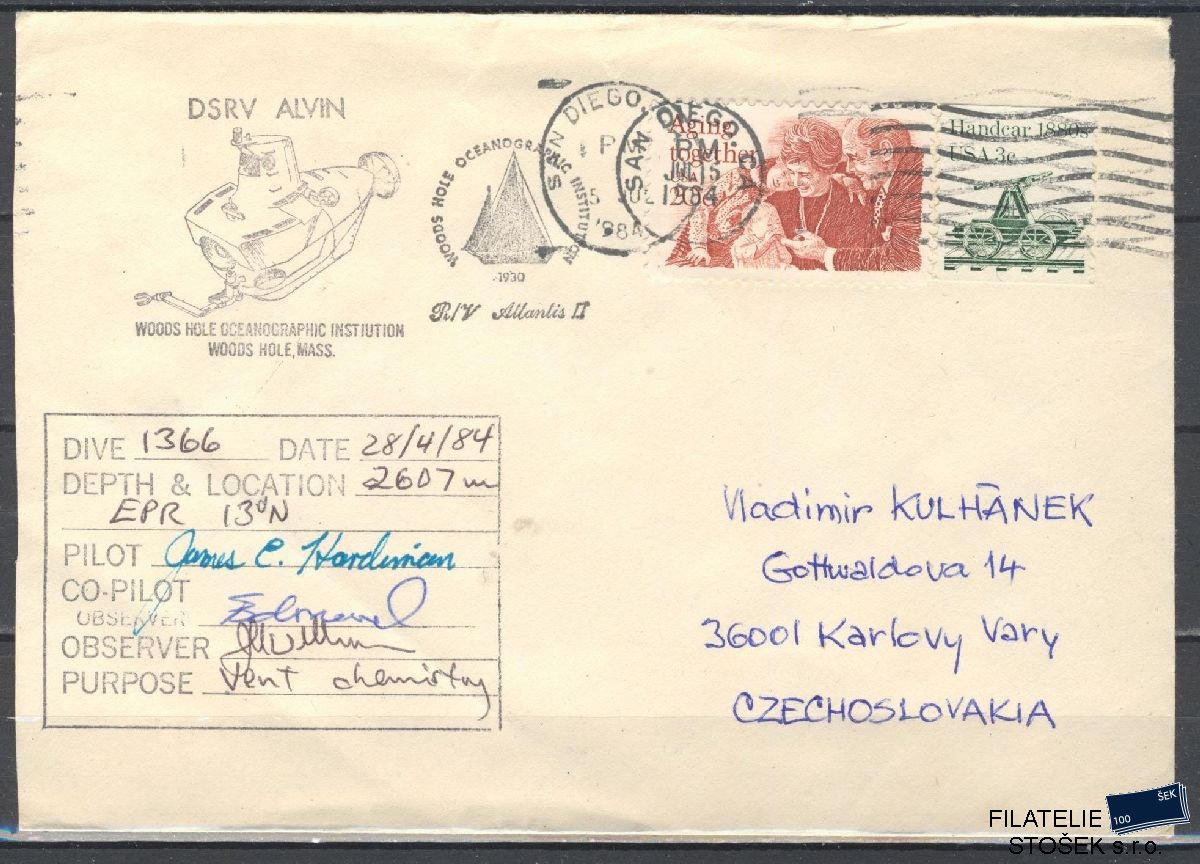 DSRV ALVIN
WOODS HOLE OCEANOGRAPHIC INSTIUTION
WOODS HOLE, MASS.
WOODS HOLE OCEANOGRAPHIC INSTITUTION
1930
R/V Atlantis II
SAN DIEGO,
P
15 JUL
1984
SAN DIEGO, CA
PM
JUL 15
1984
Aging
together
USA
20c
Handcar 1880s
USA 3c
DIVE 1366 DATE 28/4/84
DEPTH & LOCATION 2607 m
EPR 13°N
PILOT James C. Hardiman
CO-PILOT
OBSERVER
OBSERVER
PURPOSE Vent chemistry
Vladimir KULHÁNEK
Gottwaldova 14
36001 Karlovy Vary
CZECHOSLOVAKIA
FILATELIE
STOŠEK s.r.o.
100
ŠEK